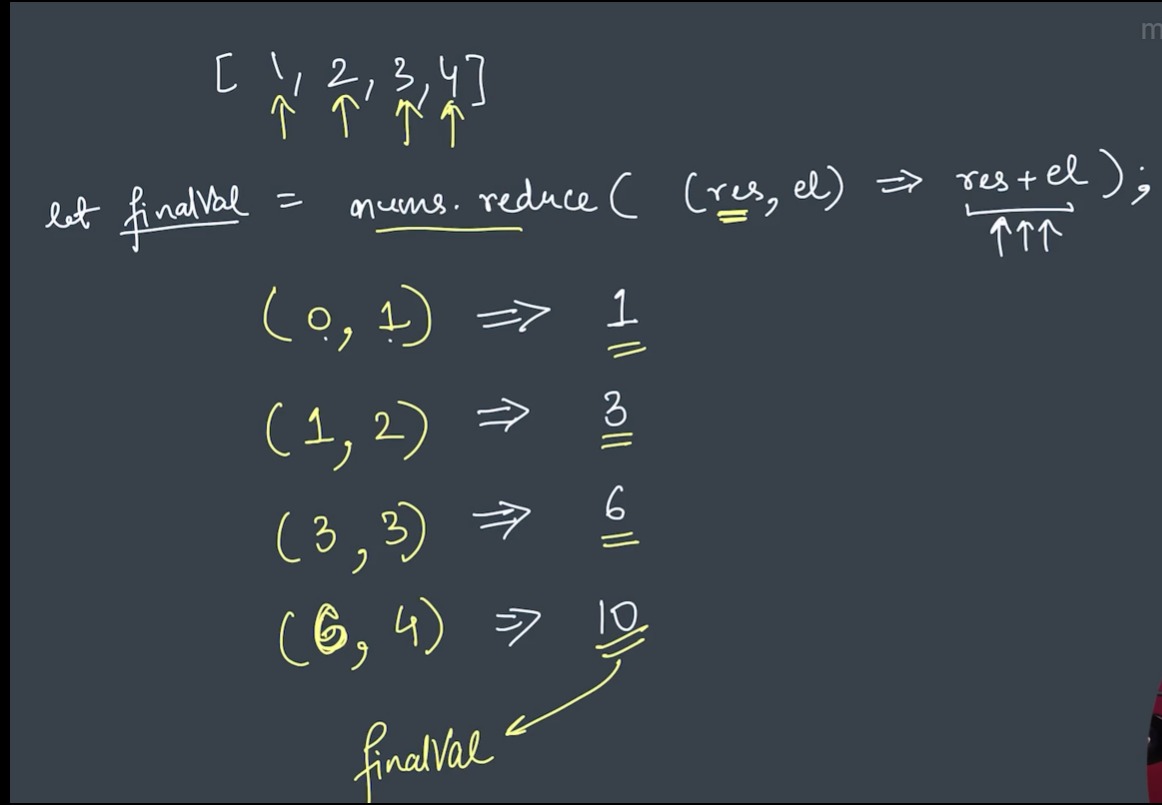 m
[ 1, 2, 3, 4]
↑ ↑ ↑ ↑
let finalVal = nums. reduce ( (res, el) => res + el );
↑↑↑
(0, 1) => 1
(1, 2) => 3
(3, 3) => 6
(6, 4) => 10
finalVal